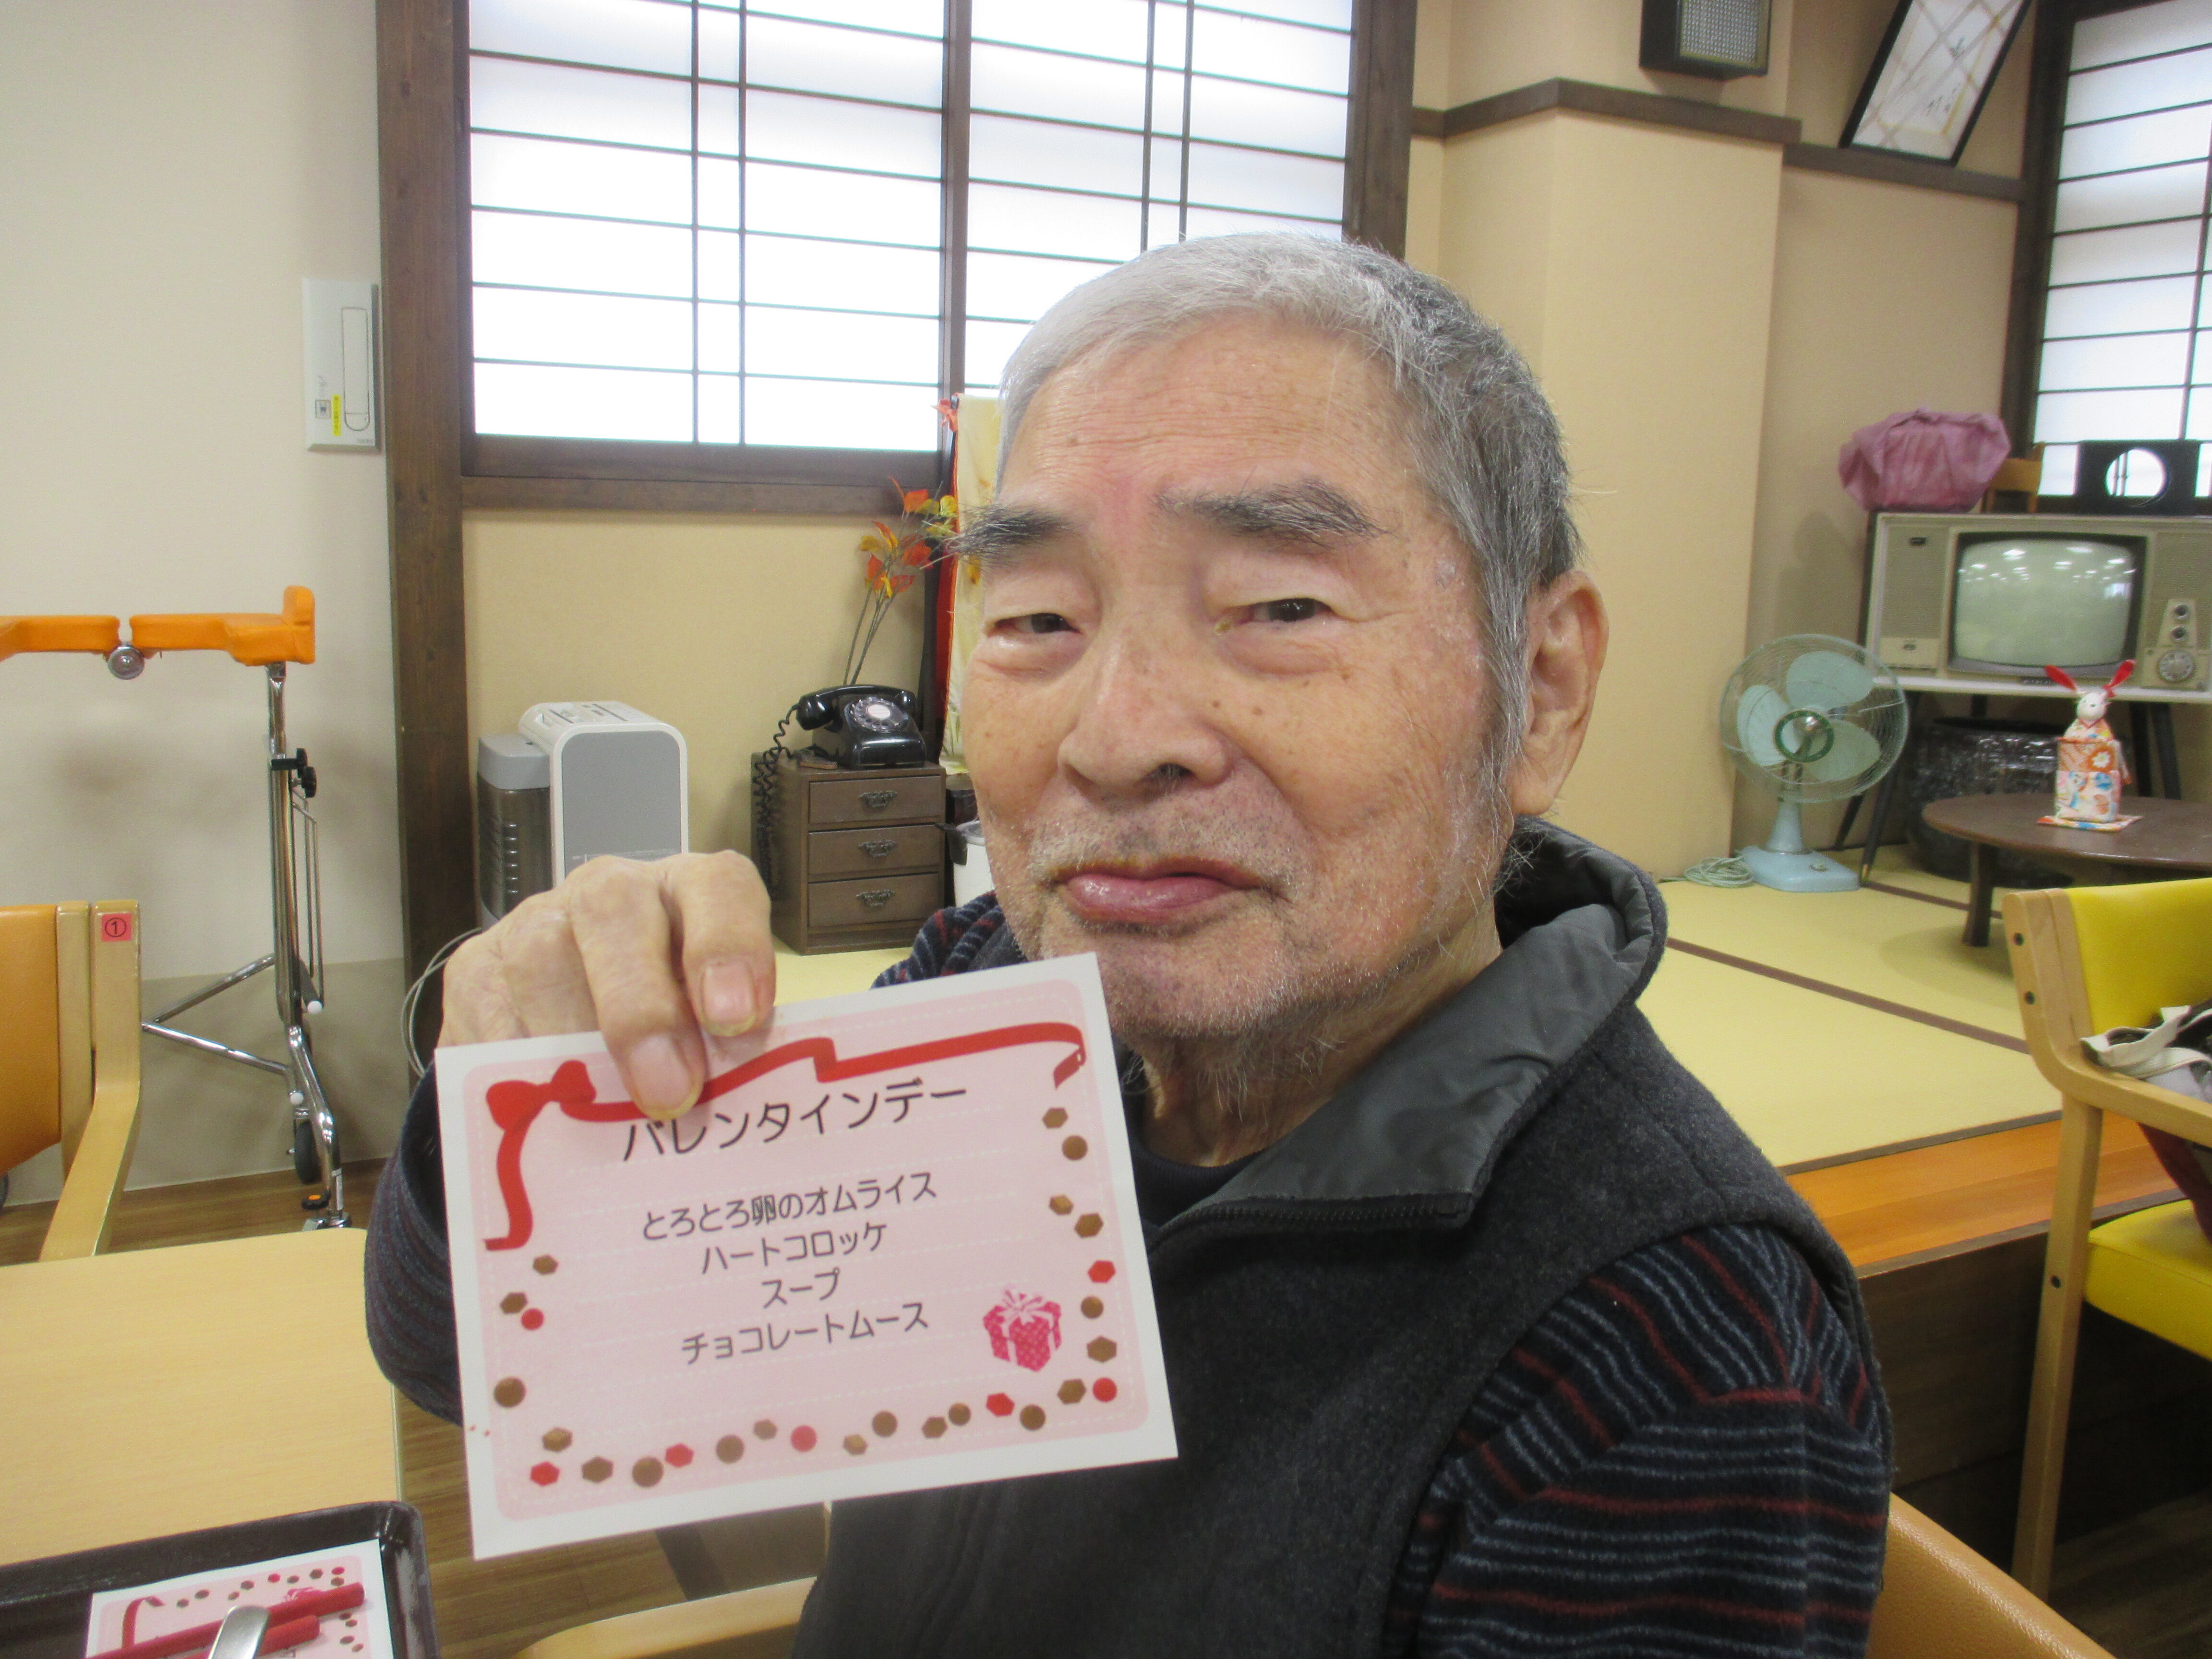 バレンタインデー
とろとろ卵のオムライス
ハートコロッケ
スープ
チョコレートムース
①